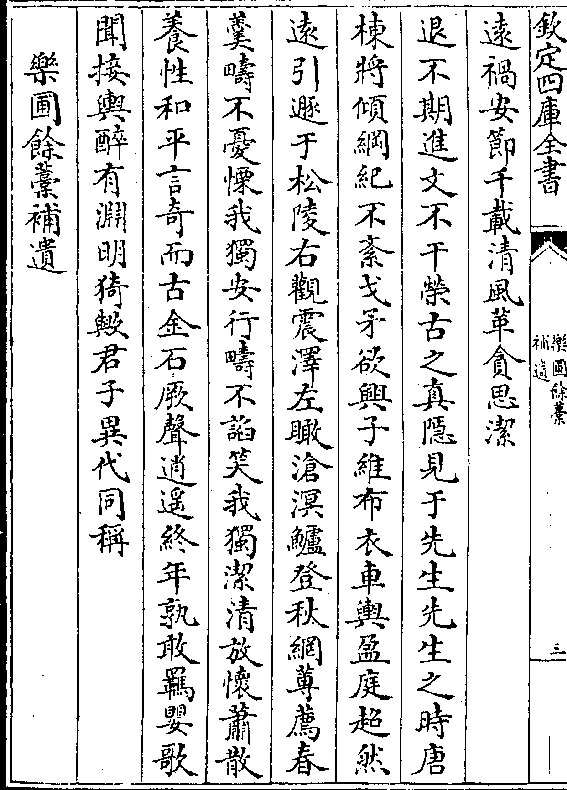 欽定四庫全書
樂圃餘藁
補遺
三
遠禍安節千載清風革貪思潔
退不期進文不干榮古之真隱見于先生先生之時唐
棟將傾綱紀不紊戈矛欲興子維布衣車輿盈庭超然
遠引遯于松陵右觀震澤左瞰滄溟鱸登秋網蓴薦春
羮疇不憂慄我獨安行疇不謟笑我獨潔清放懷蕭散
養性和平言奇而古金石厥聲逍遥終年孰敢羈嬰歌
聞接輿醉有淵明猗歟君子異代同稱
樂圃餘藁補遺